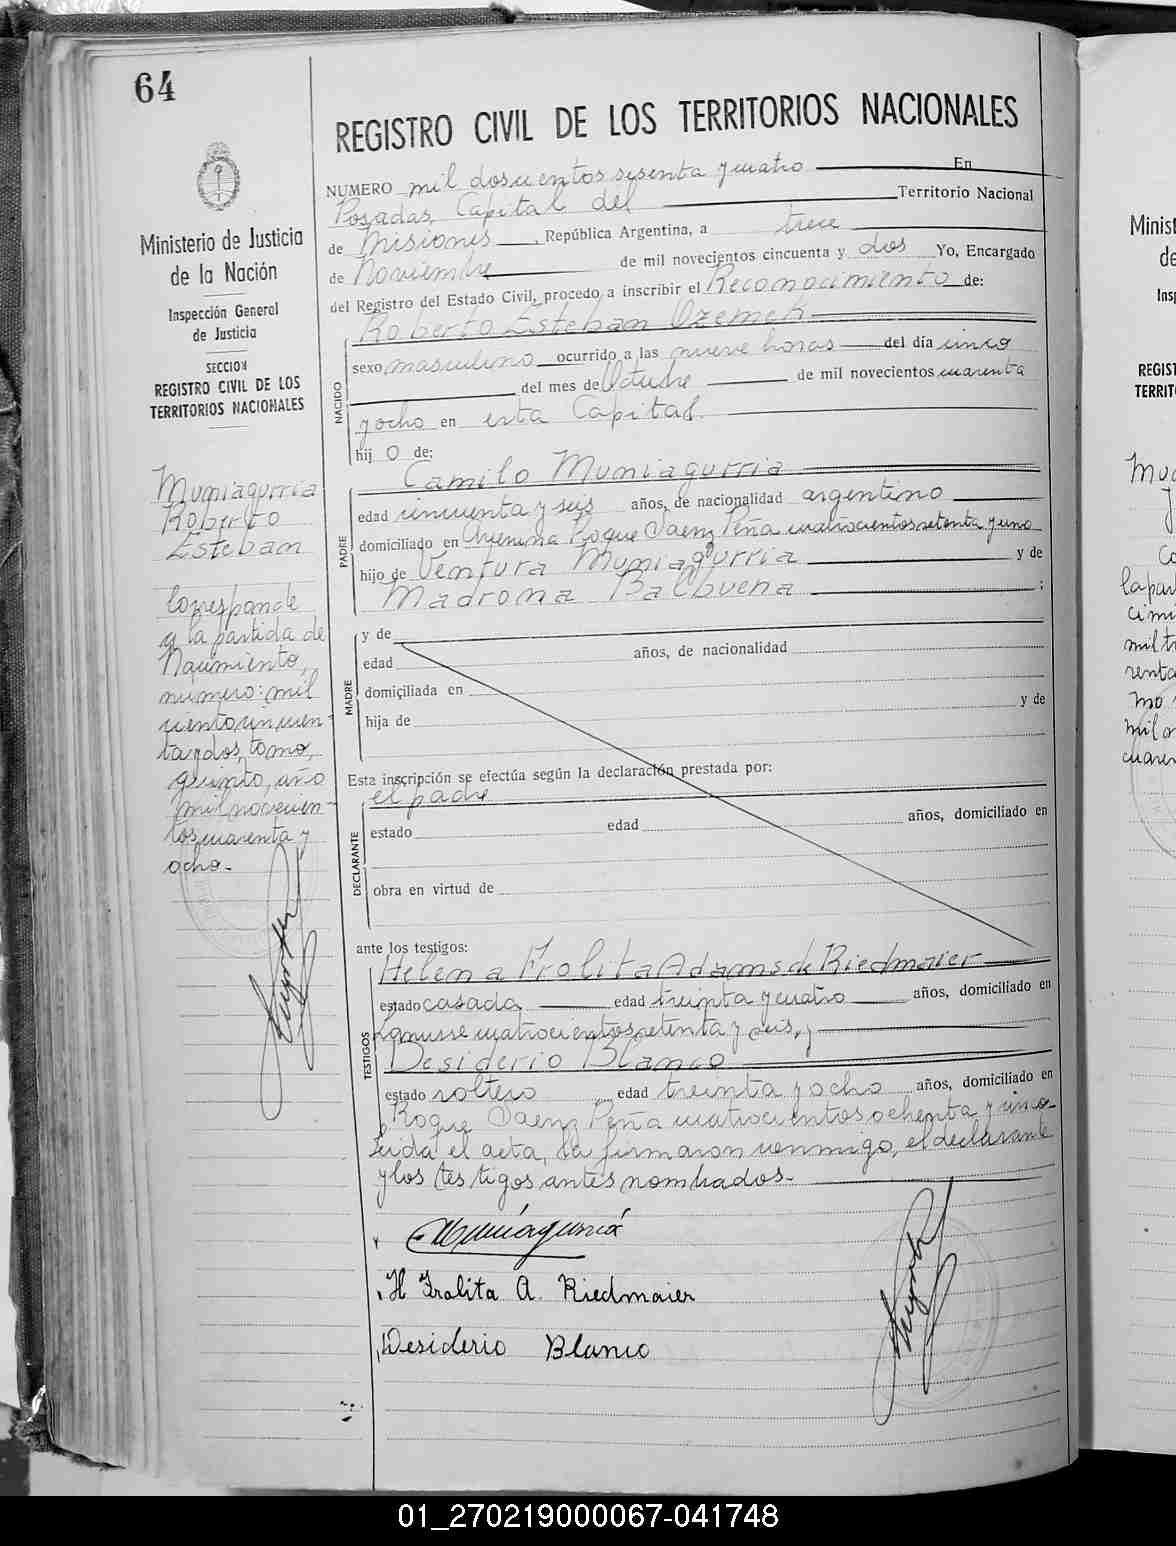 64
REGISTRO CIVIL DE LOS TERRITORIOS NACIONALES
NUMERO mil doscientos sesenta y cuatro En
Posadas, Capital del Territorio Nacional
de Misiones, República Argentina, a trece
de Noviembre de mil novecientos cincuenta y dos Yo, Encargado
del Registro del Estado Civil, procedo a inscribir el Reconocimiento de:
Roberto Esteban Ozemek
NACIDO
sexo masculino ocurrido a las nueve horas del día cinco
del mes de Octubre de mil novecientos cuarenta
y ocho en esta Capital.
hij o de:
PADRE
Camilo Muniagurria
edad cincuenta y seis años, de nacionalidad argentino
domiciliado en Avenina Roque Saenz Peña cuatrocientos setenta y uno
hijo de Ventura Muniagurria y de
Madrona Balbuena ;
MADRE
y de
edad años, de nacionalidad
domiciliada en
hija de y de
Esta inscripción se efectúa según la declaración prestada por:
el padre
DECLARANTE
estado edad años, domiciliado en
obra en virtud de
ante los testigos:
TESTIGOS
Helena Frolita Adams de Riedmaier
estado casada edad treinta y cuatro años, domiciliado en
Lanusse cuatrocientos setenta y seis, y
Desiderio Blanco
estado soltero edad treinta y ocho años, domiciliado en
Roque Saenz Peña cuatrocientos ochenta y cinco-
Leida el acta, la firmaron conmigo, el declarante
y los testigos antes nombrados.-
CMuniagurria
H Frolita A. Riedmaier
Desiderio Blanco
Ministerio de Justicia
de la Nación
Inspección General
de Justicia
SECCION
REGISTRO CIVIL DE LOS
TERRITORIOS NACIONALES
Muniagurria
Roberto
Esteban
Corresponde
a la partida de
Nacimiento,
numero: mil
ciento cincuen-
ta y dos, tomo,
quinto, año
mil novecien-
tos cuarenta y
ocho.-
01_270219000067-041748